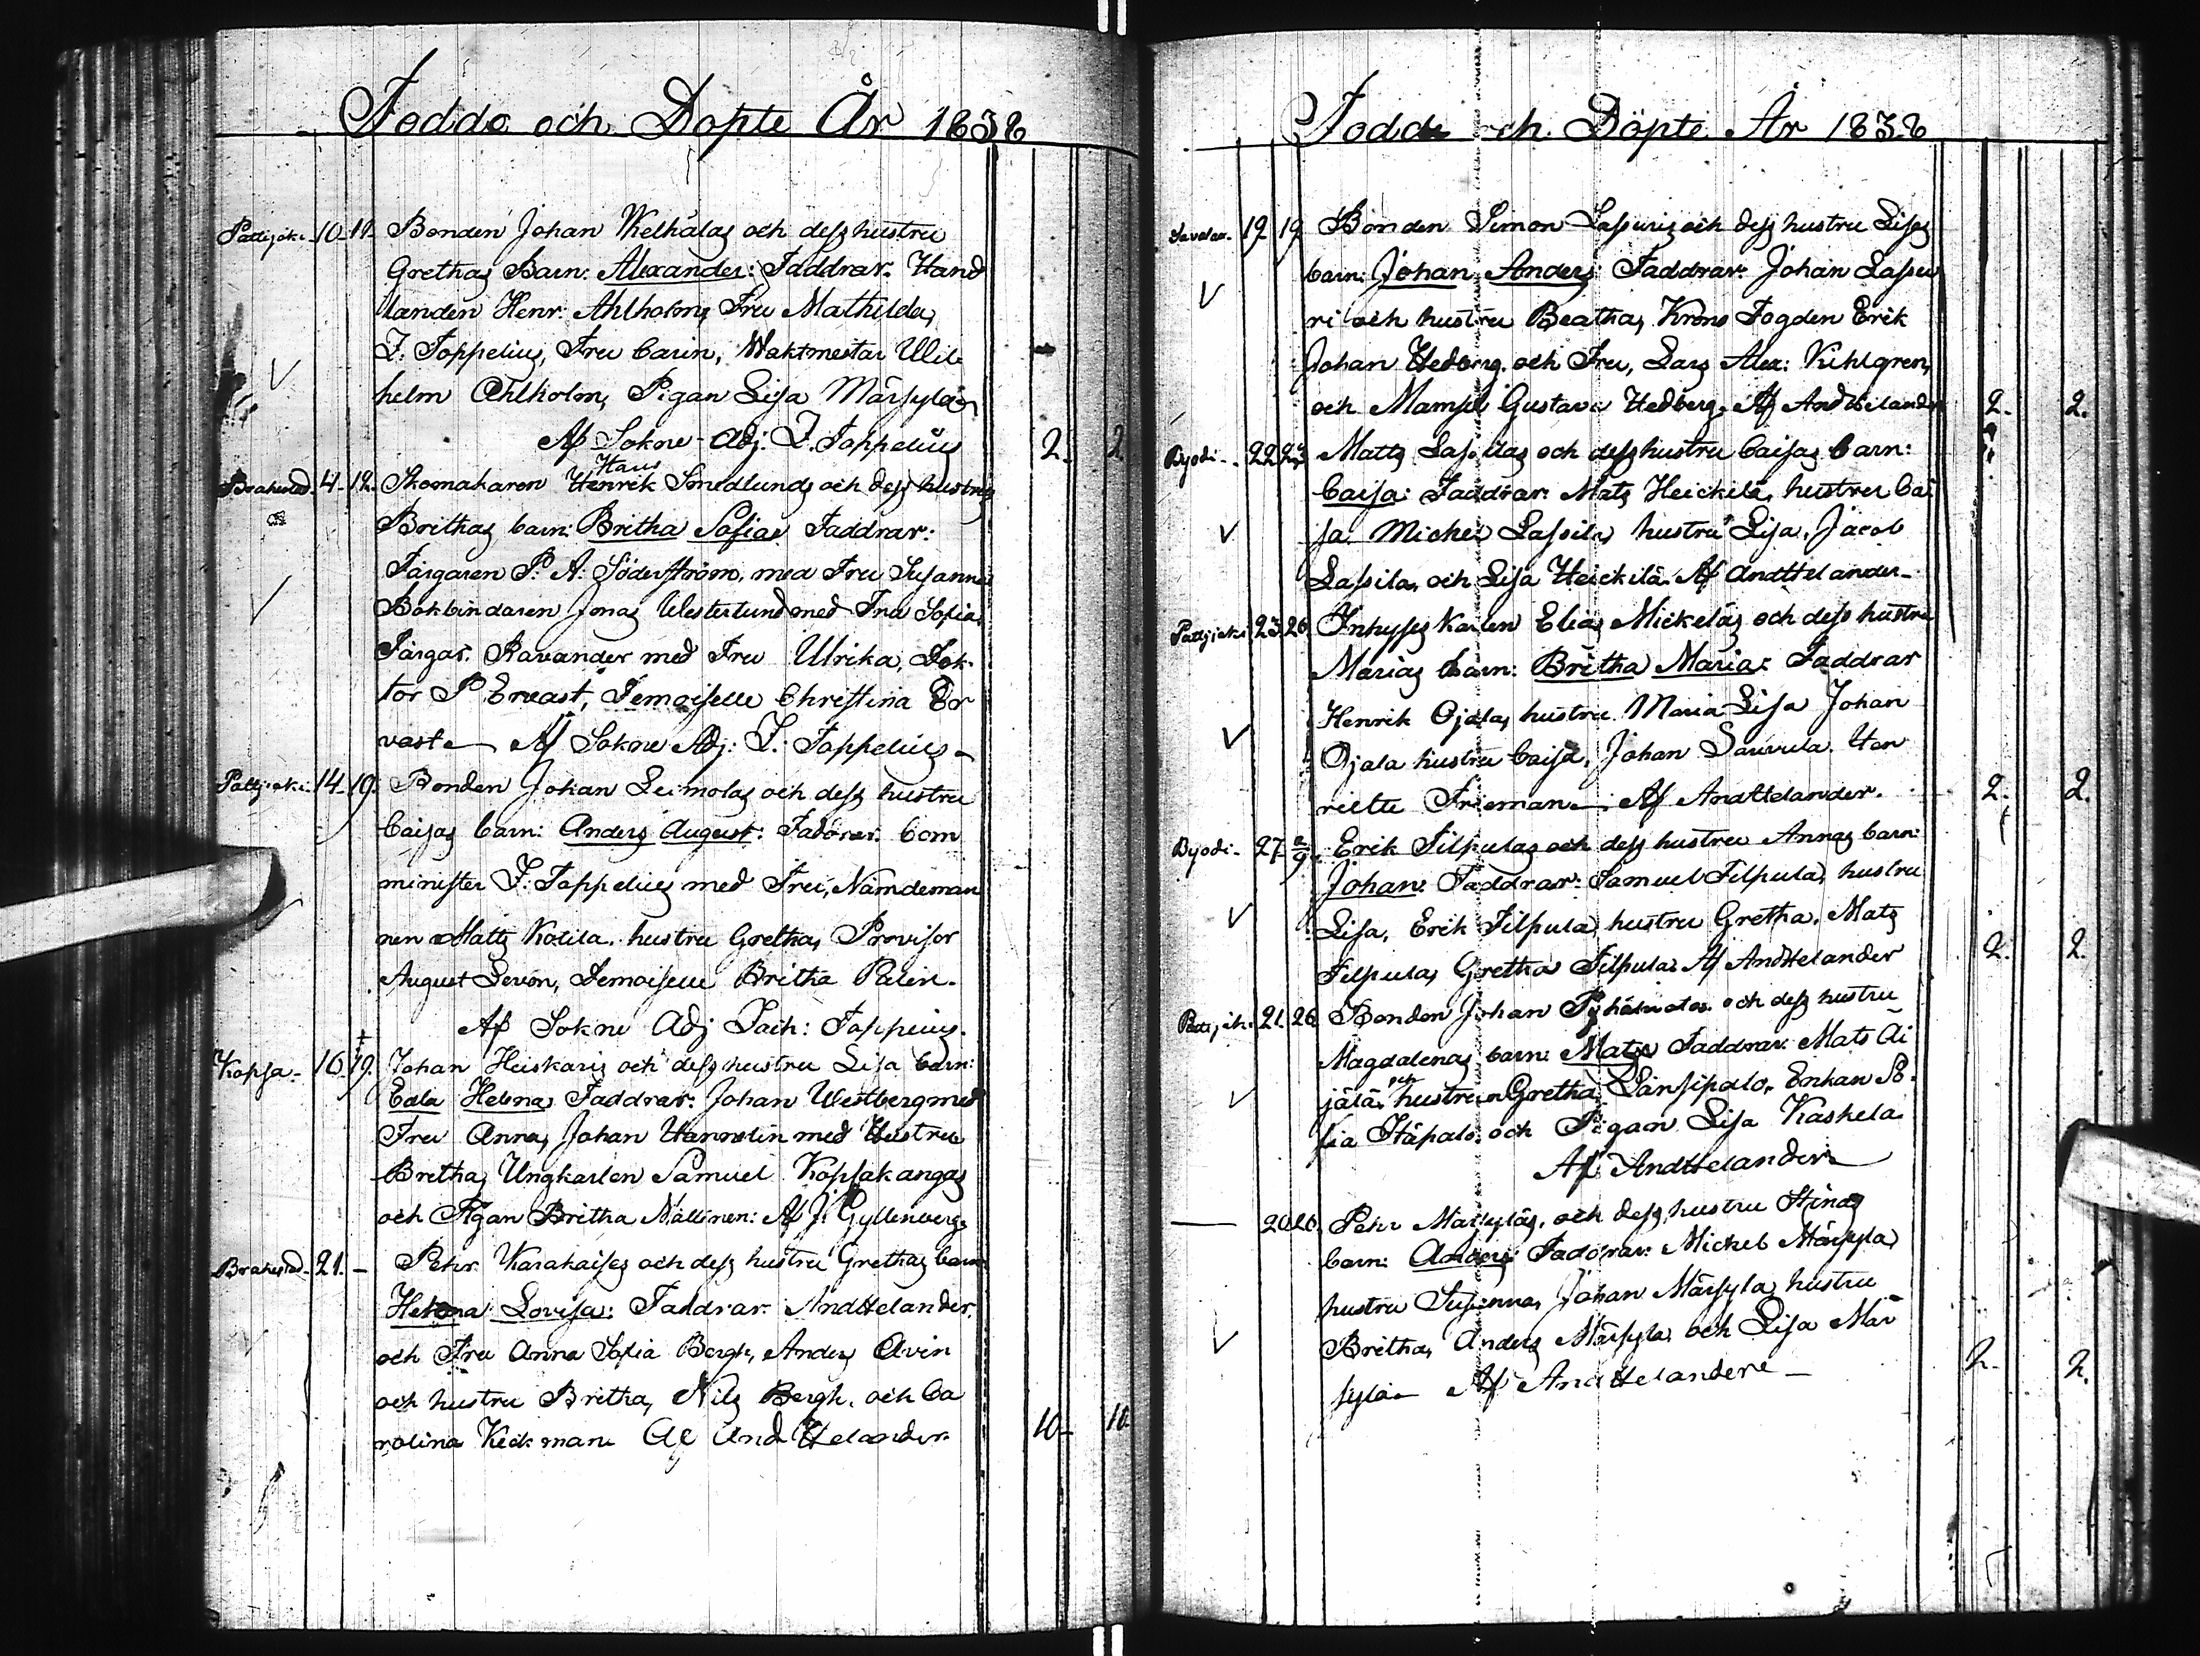 Födde och Döpte År 1838
Pattijoki 10 11 Bonden Johan Welhälas och dess hustru
Grethas Barn: Alexander: Faddrar: Hand
landen Henr: Ahlholm, Fru Mathilda,
Z: Toppelius, Fru Carin, Waktmestar Wil
helm Ahlholm, Pigan Lisa Märsylä
Af Sokne-Adj: Z. Toppelius 2. 2.
Brahestad 4 12 Skomakaren Henrik Hans Smedlunds och dess hustrus
Brithas barn: Britha Sofia. Faddrar:
Färgaren P. A. Söderström, med Fru Susanna
Bokbindaren Jonas Westerlund med Fru Sofia,
Färgar. Ravander med Fru Ulrika, Dok
tor P Ervast, Demoiselle Christina Er
vast. Af Sokne Adj: Z. Toppelius
Pattijoki 14 19. Bonden Johan Leimolas och dess hustru
Caisas barn: Anders August: Faddrar. Com
minister Z. Toppelius med Fru, Nämdeman
nen Matts Kotila. hustru Gretha, Provisor
August Levon, Demoiselle Britha Palin.
Af Sokne Adj Zach: Toppelius.
Kopsa 16 19. Johan Heiskaris och dess hustru Lisa barn:
Eda Helena, Faddrar: Johan Westberg med
Fru Anna, Johan Hannelin med Hustru
Bretha, Ungkarlen Samuel Kopsakangas
och Pigan Britha Nällinen: Af J. Gyllenberg.
Brahestad 21. Pehr Karahaises och dess hustru Grethas barn
Helena Lovisa: Faddrar: And Helander.
och Fru Anna Sofia Bergh, Anders Avin
och hustru Britha, Nils Bergh. och Ca
rolina Keckman Af And Helander. 10 10
Födde och Döpte År 1838
19 19 Bonden Simon Lassuris och dess hustru Lisas
barn: Johan Anders: Faddrar: Johan Lassu
ri och hustru Beatha, Krono Fogden Erik
Johan Hedberg. och Fru, Lars Alex: Kihlgren,
och Mamsel Gustava Hedberg. Af And Helander 2. 2.
22 23 Matts Lassilas och dess hustru Caisas barn:
Caisa: Faddrar: Mats Heickilä, hustru Cai
sa. Michel Lassila, hustru Lisa, Jacob
Lassila, och Lisa Heickilä. Af And Helander
Pattijoki 23 26 Inhyses Karlen Elias Mickeläs och dess hustru
Marias barn: Britha Maria: Faddrar
Henrik Ojala, hustru Maria Lisa Johan
Ojala hustru Caisa, Johan Sauvula. Hen
riette Frieman. Af And Helander. 2. 2.
27 2/9 Erik Filpulas och dess hustru Annas barn:
Johan: Faddrar: Samuel Filpula, hustru
Lisa, Erik Filpula, hustru Gretha. Mats
Filpula, Gretha Filpula. Af And Helander 2. 2.
Pattijoki 21. 26 Bonden Johan och dess hustru
Magdalenas barn: Mats Faddrar: Mats Äi
jälä, och hustrun Gretha Länsipalo, Enkan So
fia Itäpalo och Pigan Lisa Kaskela
Af And Helander
20 26. Pehr Märsyläs. och dess hustru Stinas
barn: Anders: Faddrar: Mickel Märsyla,
hustru Susanna, Johan Märsyla, hustru
Britha, Anders Märsyla, och Lisa Mär
sylä. Af And Helander 2. 2.